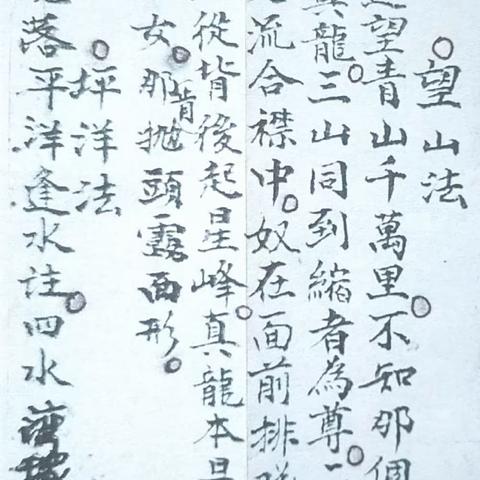 望山法
望青山千萬里不知那個
真龍三山同到縮者為尊
流合襟中奴在面前排
從背後起星峰真龍本是
女那肯拋頭露面形
坪洋法
落平洋逢水注四水